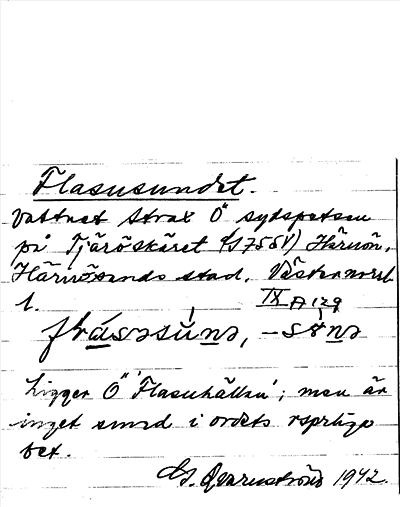 Flasusundet.
Vattnet strax Ö sydspetsen
på Tjäröskäret (S7558) Härnön,
Härnösands stad, Västernorrl
l.
IX A 129
ligger Ö "Flasuhällan"; men är
inget sund i ordets rspråkliga
bet.
G. Qvarnström 1942.